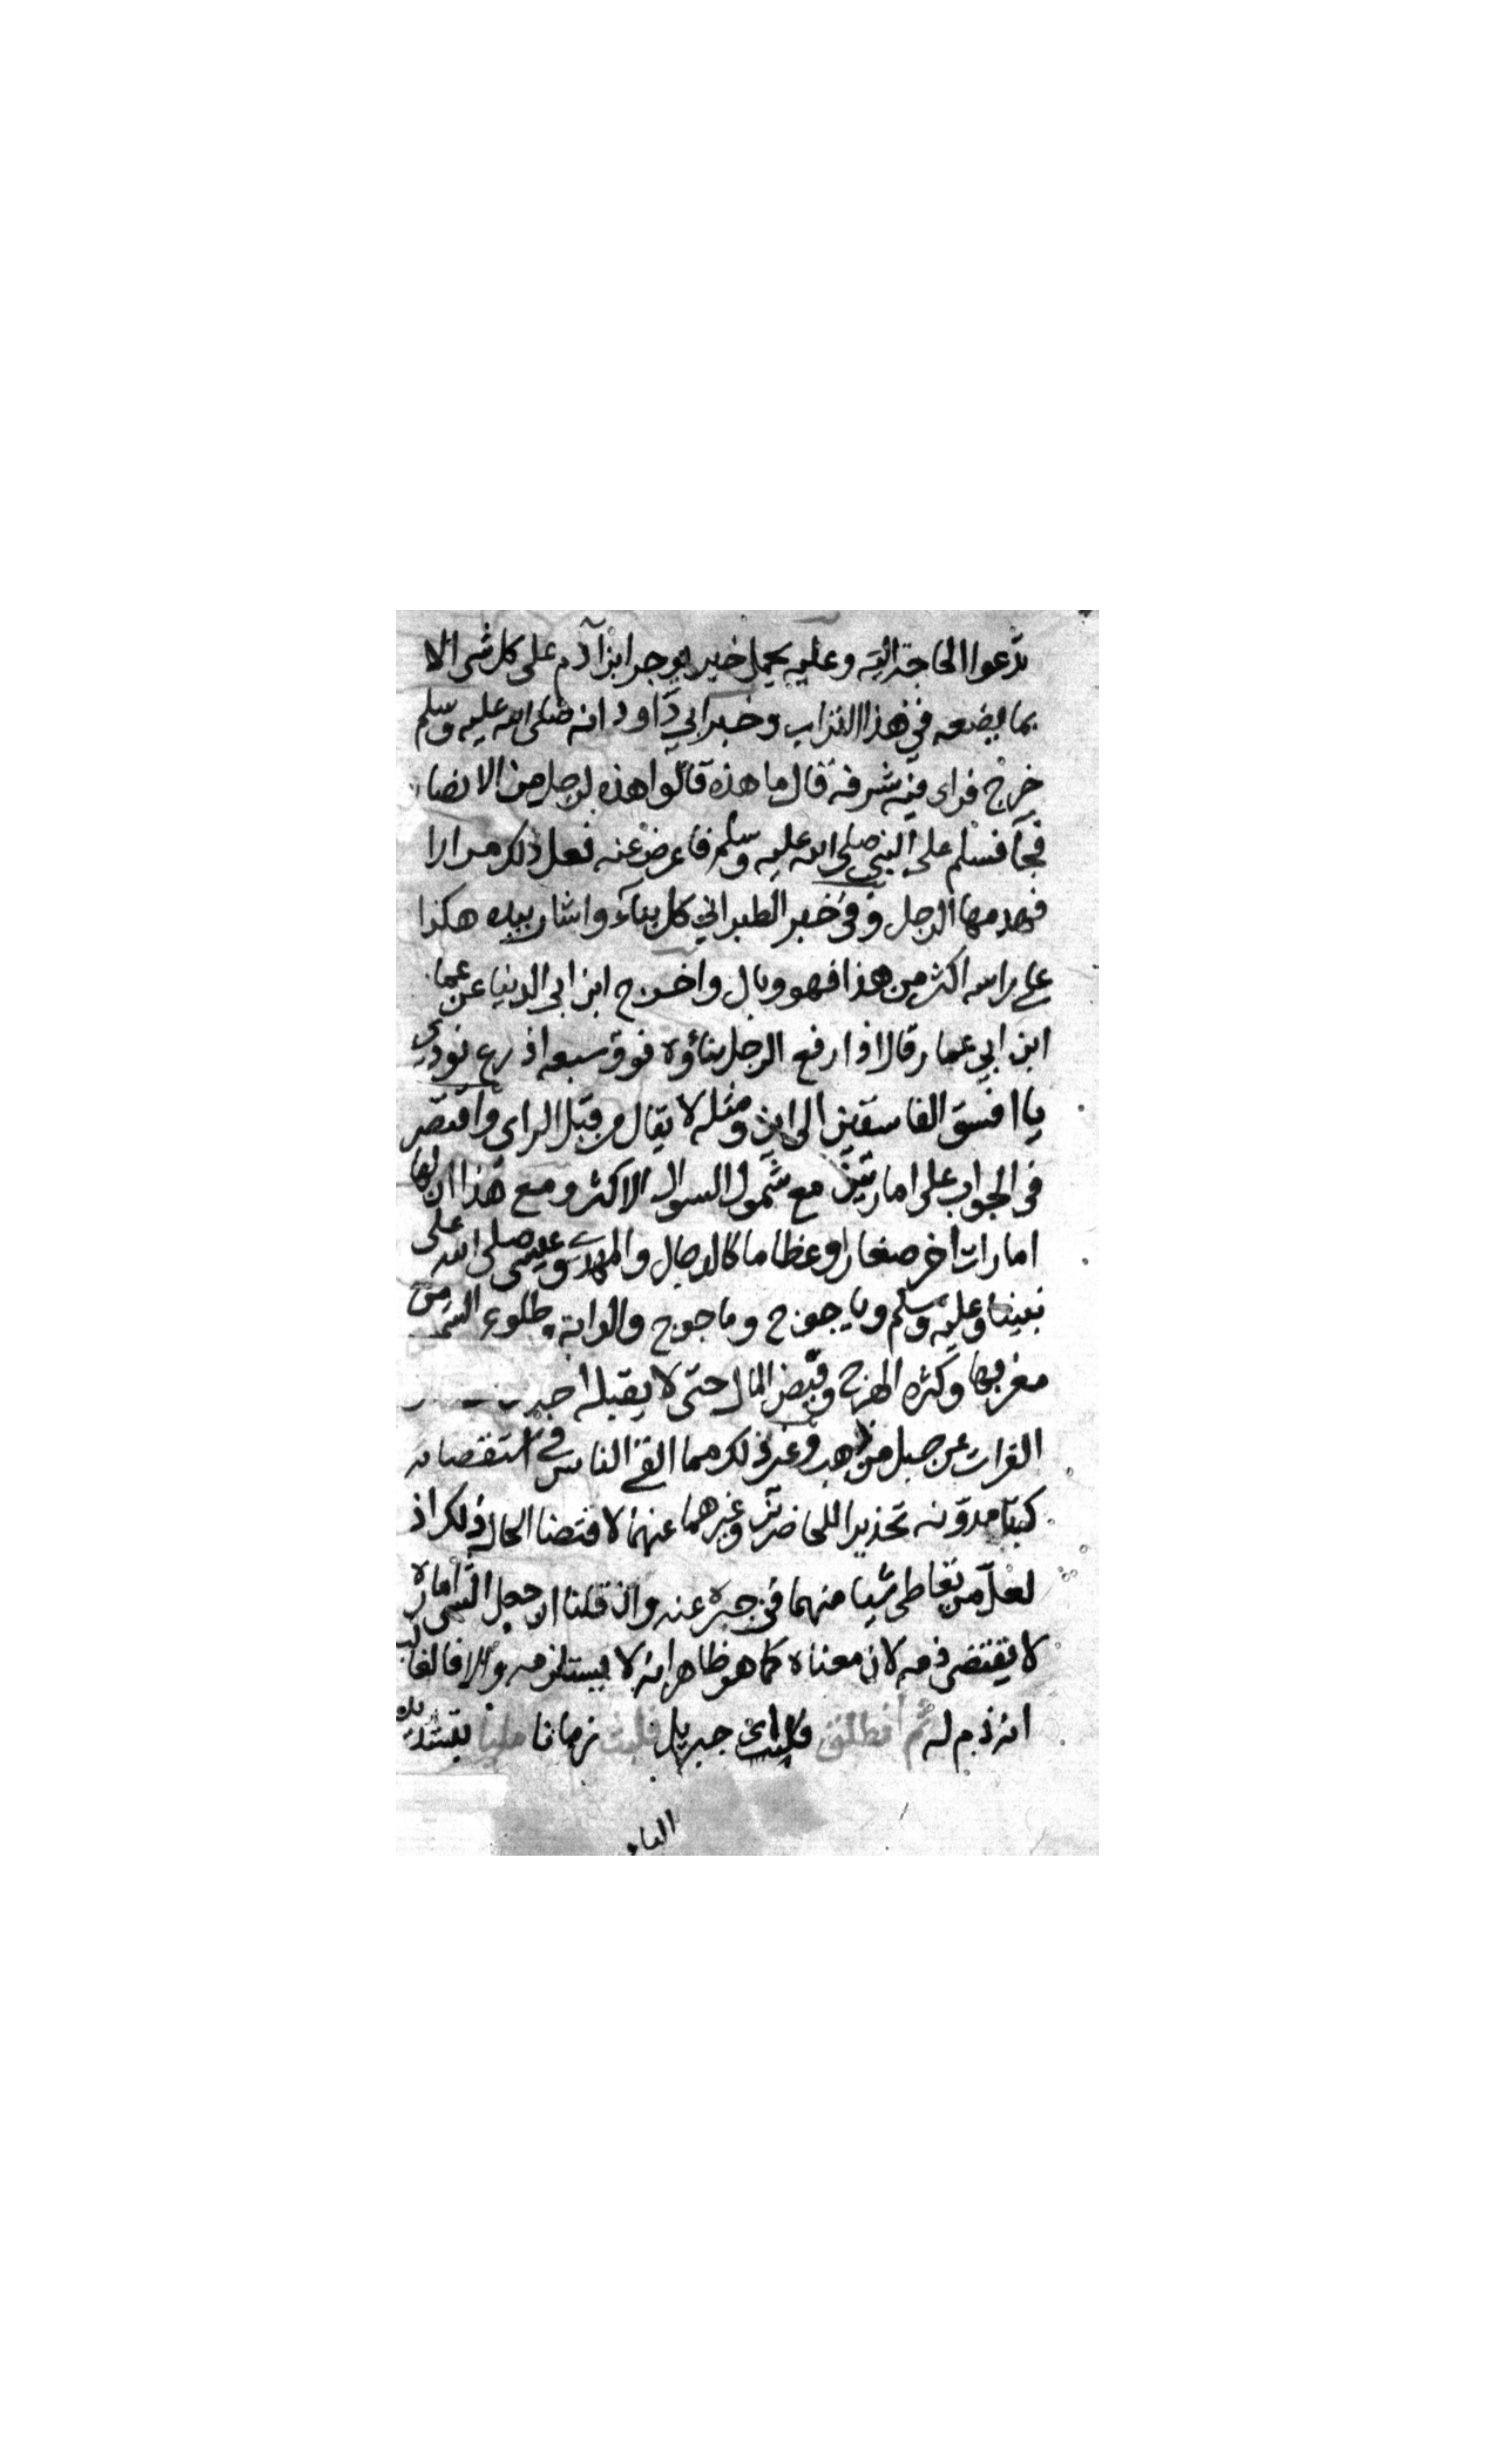 تدعوا الحاجة اليه وعليه يحمل خبر يوجر ابن آدم على كل شى الا
بما يضعه في هذا التراب وخبر ابي داود انه صلى الله عليه وسلم
خرج فراى قبة مشرفة فقال ما هذه قالوا هذه لرجل من الانصار
فجآ فسلم على النبي صلى الله عليه وسلم فاعرض عنه فعل ذلك مرارا
فهدمها الرجل وفي خبر الطبراني كل بنآء واشار بيده هكذا
على راسه اكثر من هذا فهو وبال واخرج ابن ابي الدنيا عن عمار
ابن ابي عمار قال اذا رفع الرجل بناؤه فوق سبعه اذرع نودي
يا افسق الفاسقين الى اين ومثله لا يقال من قبل الراى واقتصر
في الجواب على امارتين مع شمول السوال الاكثر ومع هذا ان لها
امارات اخر صغارا وعظاما كالدجال والمهدي وعيسى صلى الله على
نبينا وعليه وسلم وياجوج وماجوج والدابة وطلوع الشمس من
مغربها وكثره الهرج وفيض المال حتى لا يقبله احد
الفرات عن جبل من ذهب وغير ذلك مما الف الناس في استقصائه
كتبا مدونه تحذيرا للحاضرين وغيرهما عنهما لاقتضا الحال ذلك اذ
لعل من تعاطى شيا منهما فزجره عنه وان قلنا ان جعل الشى امارة
لا يقتضى ذمه لان معناه كما هو ظاهر انه لا يستلزمه والا فالغالب
انه ذم له ثم انطلق فلبث اى جبريل فلبثت زمانا مليا بتشديد
الياء